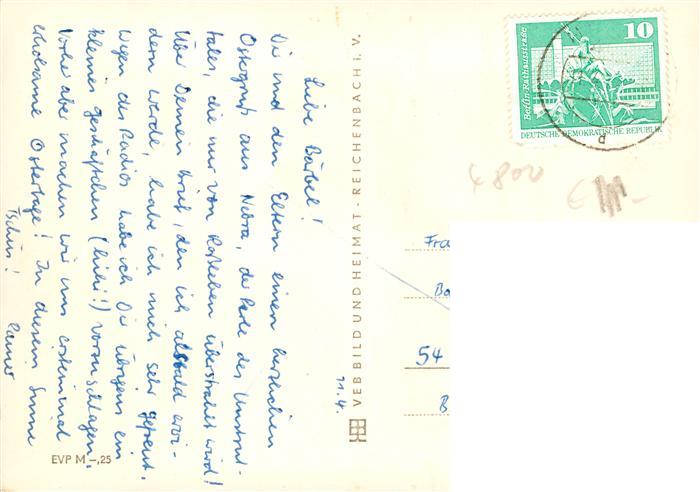 Liebe Bärbel!
Dir und den Eltern einen herzlichen
Ostergruß aus Nebra, der Perle des Unstrut-
tales, die nur von Roßleben überstrahlt wird!
Über Deinen Brief, den ich alsbald erwi-
dern werde, habe ich mich sehr gefreut.
Wegen des Radios habe ich Dir übrigens ein
kleines Geschäftchen (hihi!) vorzuschlagen.
Vorher aber machen wir uns erst einmal
erholsame Ostertage! In diesem Sinne
Tschüs!
Rainer
11.4.
EVP M –,25
VEB BILD UND HEIMAT · REICHENBACH i. V.
10
Berlin · Rathausstraße
DEUTSCHE DEMOKRATISCHE REPUBLIK
4800
Fra
54
B